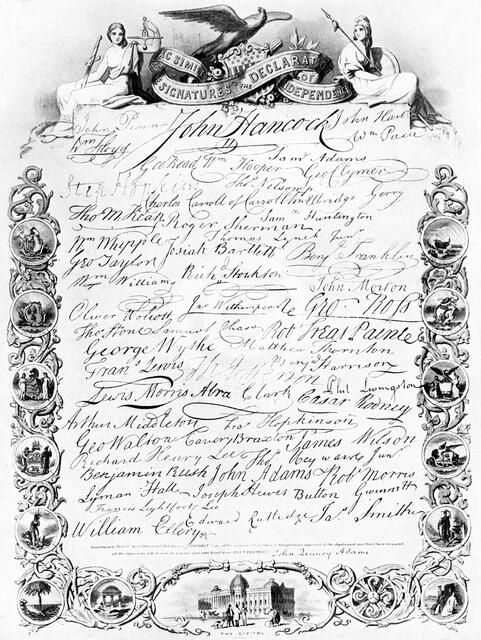 FAC SIMILE
SIGNATURES TO THE DECLARAT
OF INDEPENDEN
John Penn John Hancock John Hart
Wm Floyd Wm Paca
Geo Read Wm Hooper Sam Adams Geo Clymer
Step Hopkins Tho Nelson jr
Charles Carroll of Carrollton Elbridge Gerry
Tho M:Kean Roger Sherman Sam Huntington
Wm Whipple Thomas Lynch Junr
Geo Taylor Josiah Bartlett Benj Franklin
Wm Williams Rich Stockton John Morton
Oliver Wolcott Jno Witherspoon Geo Ross
Tho Stone Samuel Chase Robt Treat Paine
George Wythe Matthew Thornton
Frans Lewis Benj Harrison
Lewis Morris Abra Clark Cæsar Rodney Phil Livingston
Arthur Middleton Fras Hopkinson
Geo Walton Carter Braxton James Wilson
Richard Henry Lee Thos Heyward Junr
Benjamin Rush John Adams Robt Morris
Lyman Hall Joseph Hewes Button Gwinnett
Francis Lightfoot Lee
William Ellery Edward Rutledge Jas Smith
John Quincy Adams
THE CAPITOL